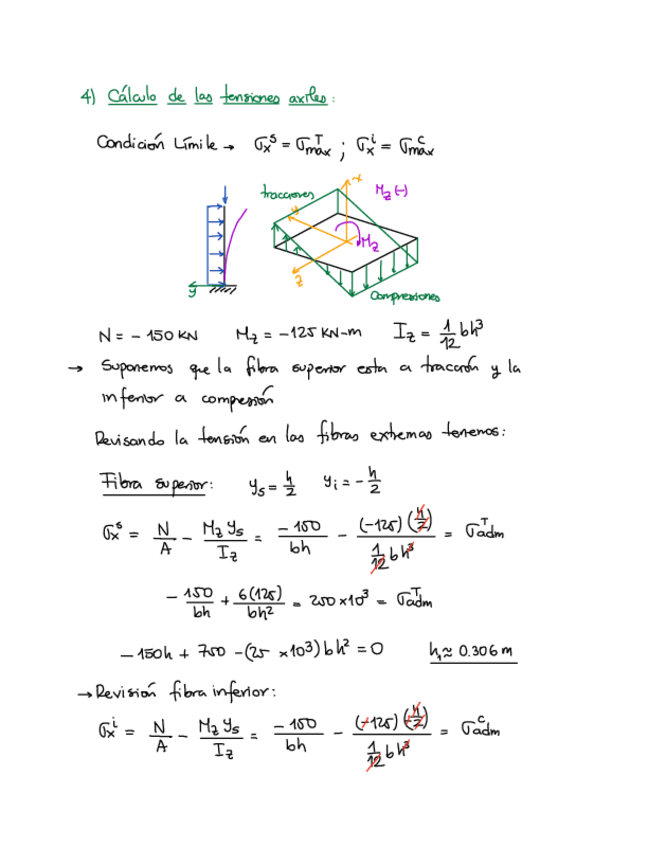 4) Cálculo de las tensiones axiles:
Condición Límite → σxˢ = σmaxᵀ ; σxⁱ = σmaxᶜ
tracciones
x
Mz (-)
y
Mz
z
y
Compresiones
N = - 150 KN Mz = -125 KN-m Iz = 1/12 bh³
→ Suponemos que la fibra superior esta a tracción y la
inferior a compresión
Revisando la tensión en las fibras extremas tenemos:
Fibra superior: ys = h/2 yi = - h/2
σxˢ = N/A - Mz ys/Iz = -150/bh - (-125)(h/2)/(1/12 bh³) = σadmᵀ
- 150/bh + 6(125)/bh² = 250 x10³ = σadmᵀ
- 150h + 750 - (25 x10³) bh² = 0 h₁ ≈ 0.306 m
→ Revisión fibra inferior:
σxⁱ = N/A - Mz ys/Iz = -150/bh - (-125)(-h/2)/(1/12 bh³) = σadmᶜ